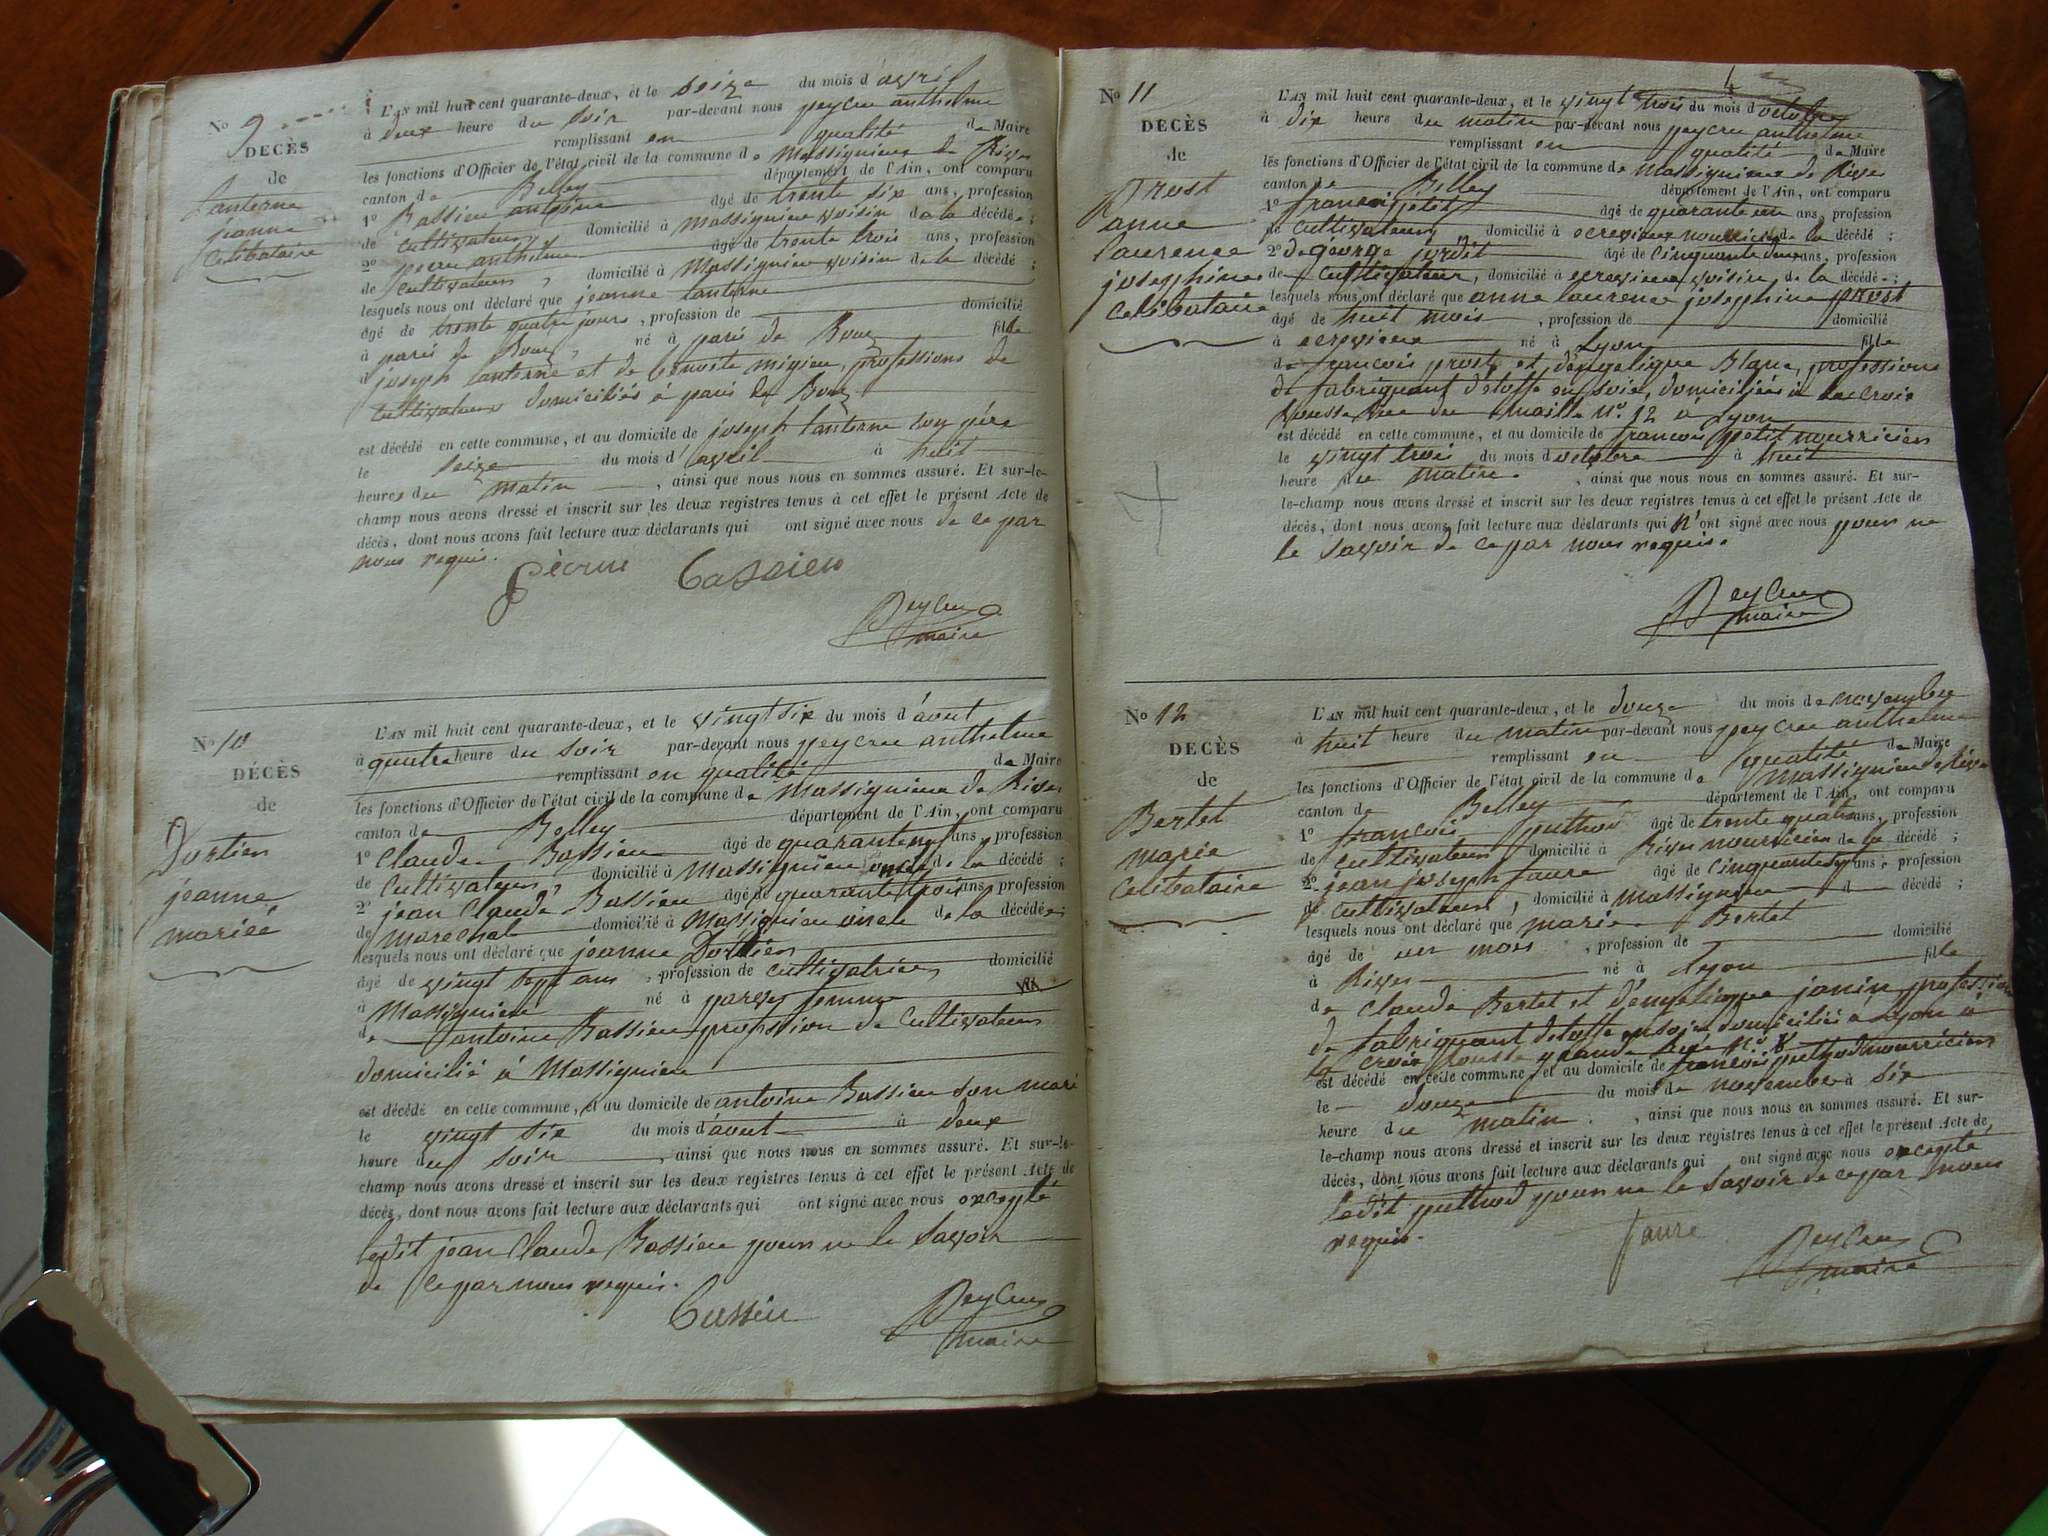 No 9
DECÈS
de
Lanterne
jeanne
celibataire
L'AN mil huit cent quarante-deux, et le seize du mois d'avril
à deux heure du soir par-devant nous peycru anthelme
remplissant en qualité de Maire
les fonctions d'Officier de l'état civil de la commune de Massignieu de Rives
canton de Belley département de l'Ain, ont comparu
1o Bassieu antoine âgé de trente six ans, profession
de cultivateur, domicilié à Massignieu voisin de la décédée ;
2o anthelme âgé de trente trois ans, profession
de cultivateur, domicilié à Massignieu voisin de la décédé ;
lesquels nous ont déclaré que jeanne lanterne
âgé de trente quatre jours, profession de domicilié
à paris de Bouz, né à paris de Bouz fille
d joseph lanterne et de benoite migieu, professions de
cultivateurs domiciliés à paris de Bouz
est décédé en cette commune, et au domicile de joseph lanterne son père
le seize du mois d'avril à huit
heures du matin, ainsi que nous nous en sommes assuré. Et sur-le-
champ nous avons dressé et inscrit sur les deux registres tenus à cet effet le présent Acte de
décès, dont nous avons fait lecture aux déclarants qui ont signé avec nous de ce par
nous requis.
Bassieu
Peycru
maire
No 10
DÉCÈS
de
Dortien
jeanne
mariée
L'AN mil huit cent quarante-deux, et le vingt six du mois d'avut
à quatre heure du soir par-devant nous peycru anthelme
remplissant en qualité de Maire
les fonctions d'Officier de l'état civil de la commune de Massignieu de Rives
canton de Belley département de l'Ain, ont comparu
1o Claude Bassieu âgé de quarante ans, profession
de Cultivateur, domicilié à Massignieu oncle de la décédé ;
2o jean Claude Bassieu âgé de quarant trois ans, profession
de marechal domicilié à Massignieu oncle de la décédée ;
lesquels nous ont déclaré que jeanne Dortien
âgé de vingt sept ans, profession de cultivatrice domicilié
à Massignieu né à parves femme
de antoine Bassieu profession de Cultivateur
domicilié à Massignieu
est décédé en cette commune, et au domicile de antoine Bassieu son mari
le vingt six du mois d'avut à deux
heure du soir, ainsi que nous nous en sommes assuré. Et sur-le-
champ nous avons dressé et inscrit sur les deux registres tenus à cet effet le présent Acte de
décès, dont nous avons fait lecture aux déclarants qui ont signé avec nous excepté
ledit jean Claude Bassieu pour ne le savoir
de ce par nous requis.
Bassieu
Peycru
maire
No 11
DECÈS
de
Prost
anne
laurence
josephine
celibataire
L'AN mil huit cent quarante-deux, et le vingt trois du mois d'octobre
à dix heure du matin par-devant nous peycru anthelme
remplissant en qualité de Maire
les fonctions d'Officier de l'état civil de la commune de Massignieu de Rives
canton de Belley département de l'Ain, ont comparu
1o francois petit âgé de quarante un ans, profession
de Cultivateur, domicilié à ecrevieux nourricier de la décédé ;
2o de george jordit âgé de cinquante deux ans, profession
de cultivateur, domicilié à ecrevieux voisin de la décédée ;
lesquels nous ont déclaré que anne laurence josephine prost
âgé de huit mois, profession de domicilié
à ecrevieux né à Lyon fille
de francois proste et d'engelique Blanc, professions
de fabriquant d'etoffe en soie, domiciliés à la croix
rousse rue du maille No. 12 a Lyon
est décédé en cette commune, et au domicile de francois petit nourricien
le vingt trois du mois d'octobre à huit
heure du matin, ainsi que nous nous en sommes assuré. Et sur-
le-champ nous avons dressé et inscrit sur les deux registres tenus à cet effet le présent Acte de
décès, dont nous avons fait lecture aux déclarants qui n'ont signé avec nous pour ne
le savoir de ce par nous requis.
Peycru
maire
No 12
DECÈS
de
Bertet
marie
Celibataire
L'AN mil huit cent quarante-deux, et le douze du mois de novembre
à huit heure du matin par-devant nous peycru anthelme
remplissant en qualité de Maire
les fonctions d'Officier de l'état civil de la commune de Massignieu de Rives
canton de Belley département de l'Ain, ont comparu
1o francois puthod âgé de trente quatre ans, profession
de cultivateur, domicilié à Rives nourricien de la décédé ;
2o jean joseph faure âgé de cinquante ans, profession
de cultivateur, domicilié à Massignieu d décédé ;
lesquels nous ont déclaré que marie Bertet
âgé de un mois, profession de domicilié
à Rives né à Lyon fille
de Claude Bertet et d'engelique janin profession
de fabriquant d'etoffe en soie domicilié a Lyon à
la croix rousse grande rue No 8
est décédé en cette commune, et au domicile de francois puthod nourricien
le douze du mois de novembre à six
heure du matin, ainsi que nous nous en sommes assuré. Et sur-
le-champ nous avons dressé et inscrit sur les deux registres tenus à cet effet le présent Acte de
décès, dont nous avons fait lecture aux déclarants qui ont signé avec nous excepté
ledit puthod pour ne le savoir de ce par nous
requis.
faure
Peycru
maire